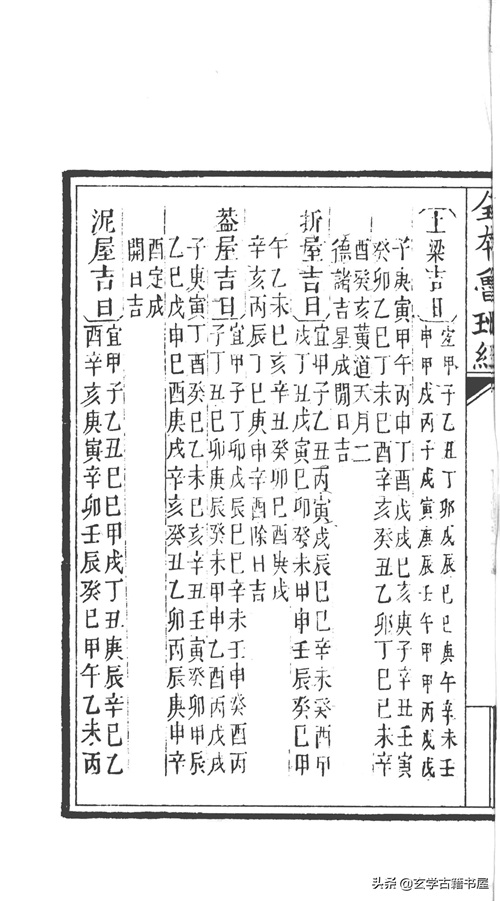 全本魯班經
上梁吉日
宜甲子乙丑丁卯戊辰己巳庚午辛未壬
申甲戌丙子戊寅庚辰壬午甲申丙戌戊
子庚寅甲午丙申丁酉戊戌己亥庚子辛丑壬寅
癸卯乙巳丁未己酉辛亥癸丑乙卯丁巳己未辛
酉癸亥黃道天月二
德諸吉星成開日吉
折屋吉日
宜甲子乙丑丙寅戊辰己巳辛未癸酉甲
戌丁丑戊寅己卯癸未甲申壬辰癸巳甲
午乙未己亥辛丑癸卯己酉庚戌
辛亥丙辰丁巳庚申辛酉除日吉
蓋屋吉日
宜甲子丁卯戊辰己巳辛未壬申癸酉丙
子丁丑己卯庚辰癸未甲申乙酉丙戌戊
子庚寅丁酉癸巳乙未己亥辛丑壬寅癸卯甲辰
乙巳戊申己酉庚戌辛亥癸丑乙卯丙辰庚申辛
酉定成
開日吉
泥屋吉日
宜甲子乙丑己巳甲戌丁丑庚辰辛巳乙
酉辛亥庚寅辛卯壬辰癸巳甲午乙未丙
头条 @玄学古籍书屋